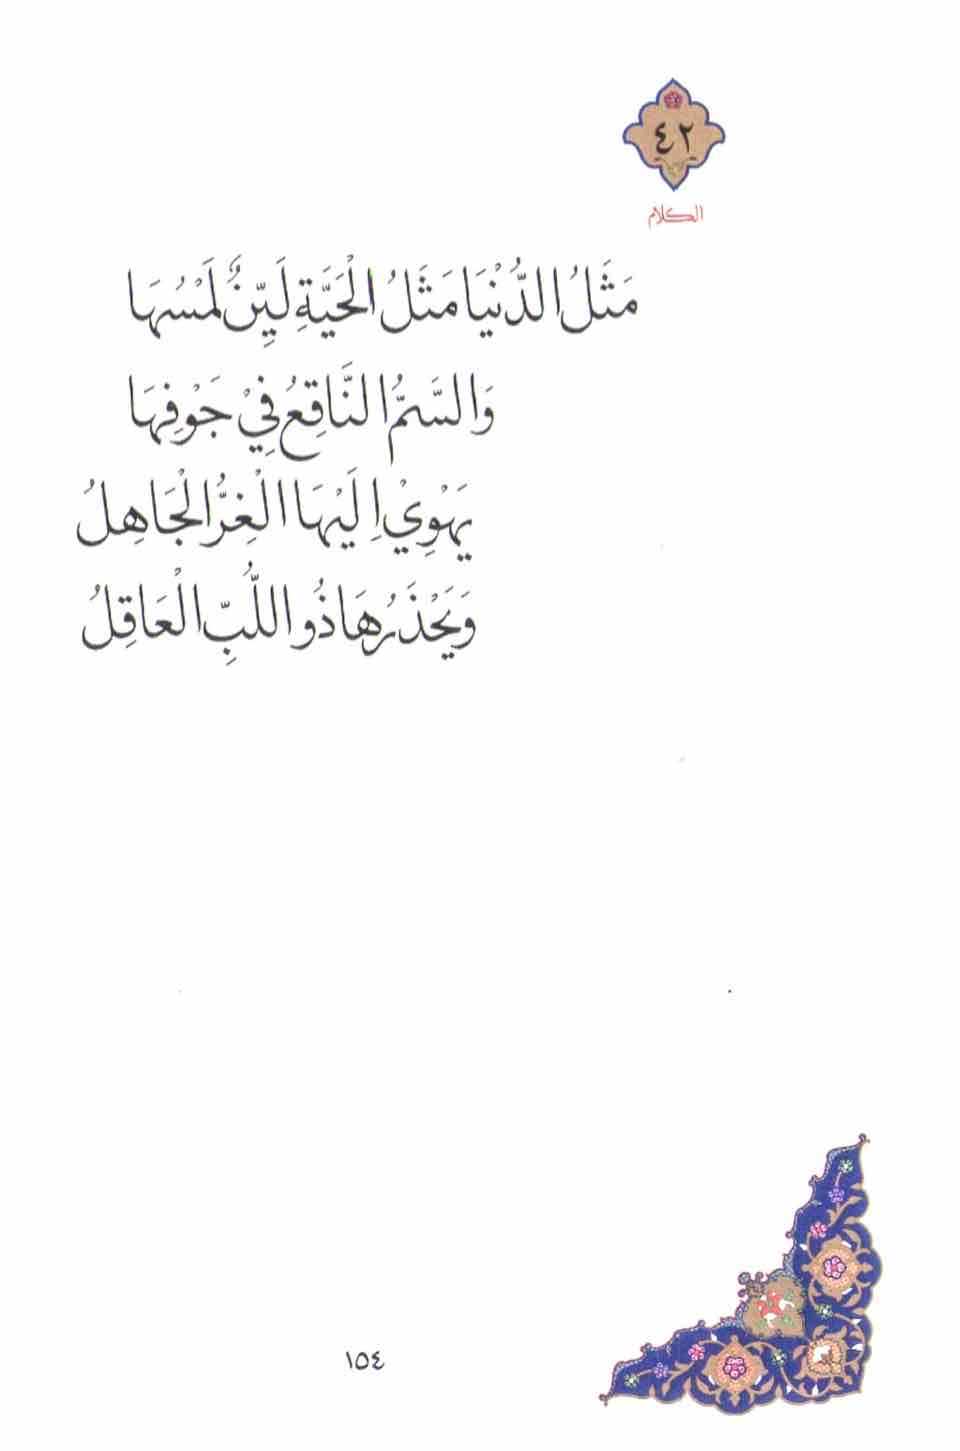 ٤٢
الكلام
مَثَلُ الدُّنْيَا مَثَلُ الْحَيَّةِ لَيِّنٌ لَمْسُهَا
وَالسَّمُّ النَّاقِعُ فِيْ جَوْفِهَا
يَهْوِيْ اِلَيْهَا الْغِرُّ الْجَاهِلُ
وَيَحْذَرُهَا ذُو اللُّبِّ الْعَاقِلُ
١٥٤